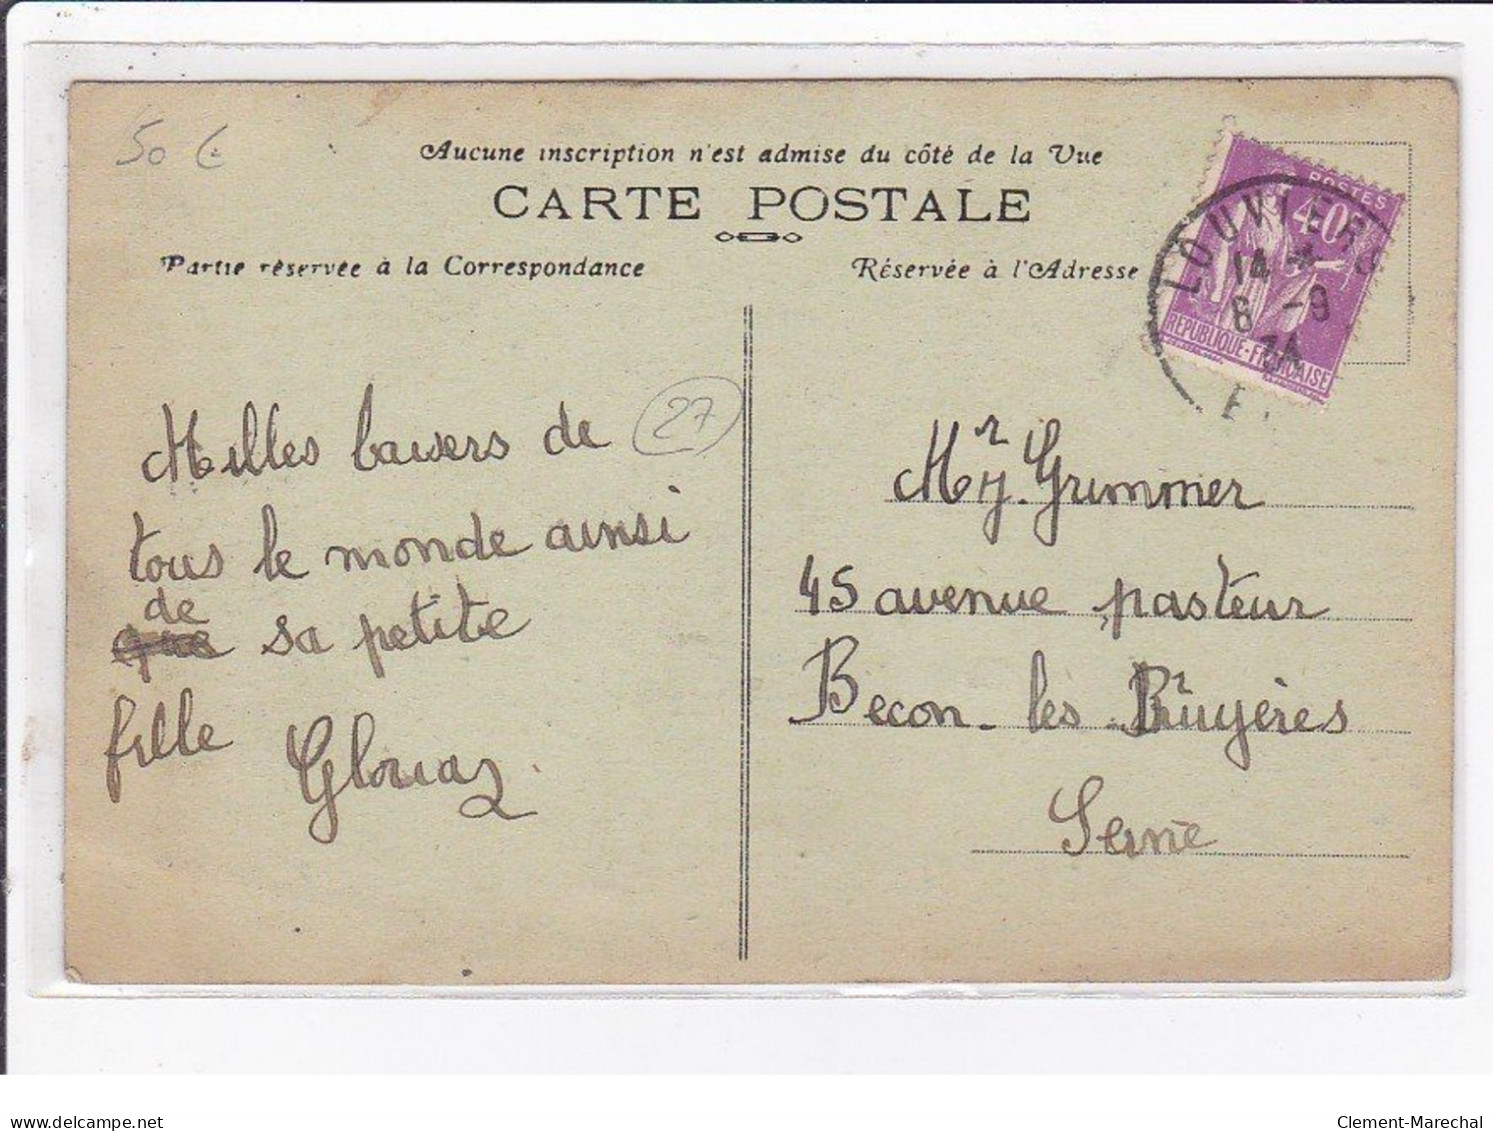 50 €
Aucune inscription n'est admise du côté de la Vue
CARTE POSTALE
Partie réservée à la Correspondance
Réservée à l'Adresse
POSTES
40c
REPUBLIQUE-FRANCAISE
LOUVIERS
14 *
6 -9
34
E
27
Milles baisers de
tous le monde ainsi
de
que sa petite
fille
Mr J. Grimmer
45 avenue pasteur
Becon-les-Bruyères
Seine
Clement-Marechal
delcampe.net